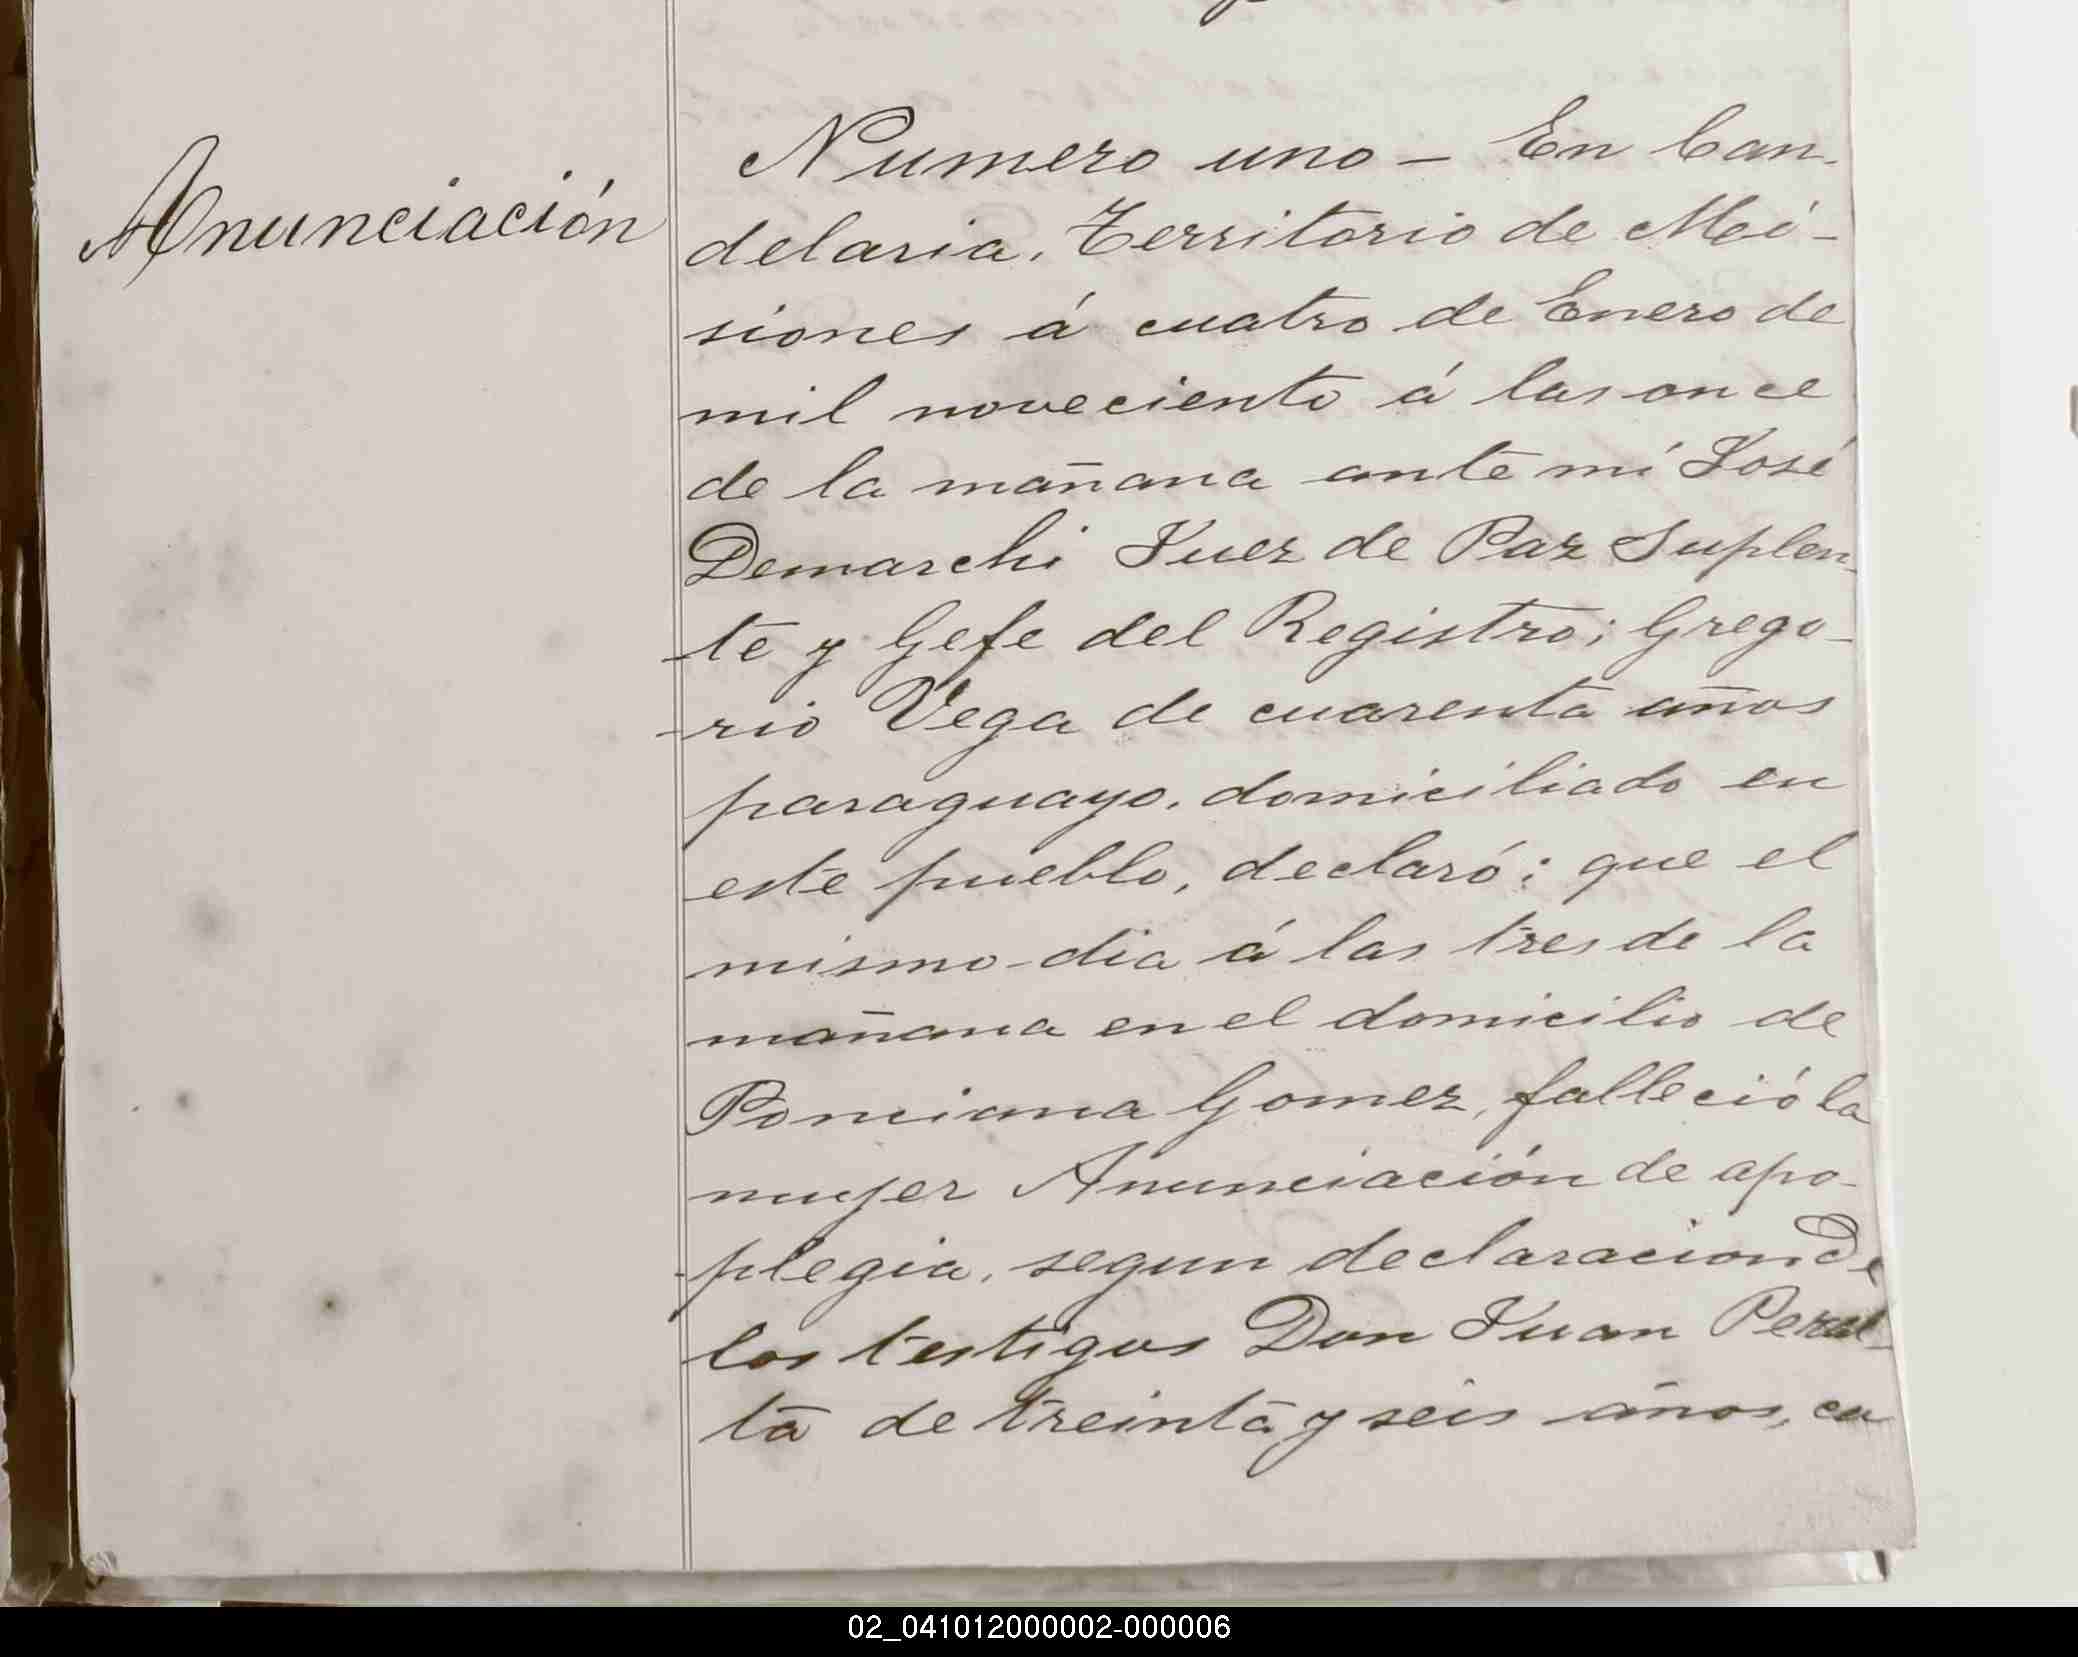 Anunciación
Numero uno — En Can-
delaria, Territorio de Mi-
siones á cuatro de Enero de
mil noveciento á las once
de la mañana ante mí José
Demarchi Juez de Paz Suplen-
te y Gefe del Registro; Grego-
rio Vega de cuarenta años
paraguayo, domiciliado en
este pueblo, declaró: que el
mismo dia á las tres de la
mañana en el domicilio de
Ponciana Gomez, falleció la
mujer Anunciación de apo-
plegia, segun declaracion de
los testigos Don Juan Peral-
ta de treinta y seis años, ca
02_041012000002-000006